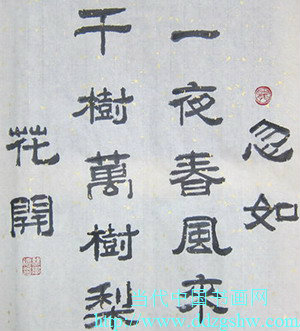 忽如
一夜春風來
千樹萬樹梨
花開
当代中国书画网
www.ddzgshw.com